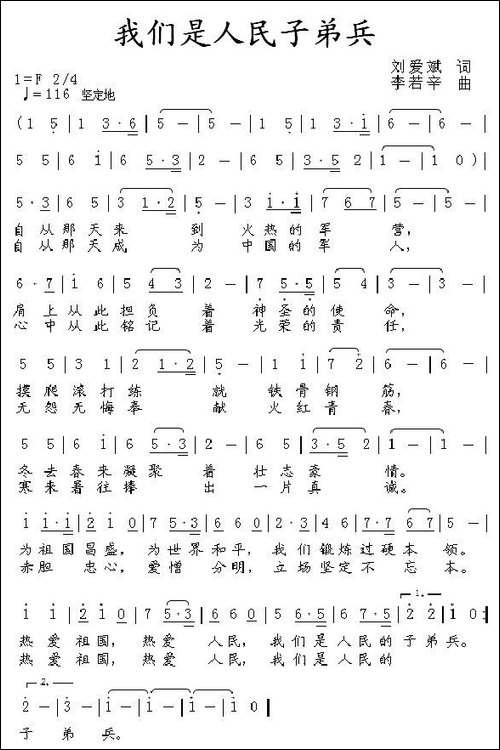 我们是人民子弟兵
1=F 2/4
刘爱斌 词
♩=116 坚定地
李若辛 曲
(1 5|1 3·6|5 - |5 - |1 5|1 3·i|6 - |6 - |
5 5|6 i|6 5·3|2 - |6 5|5 3·5 2|1 - |1 0)|
5·3|6 5|3 1·2|5 - |3 i·i|7 6 7|5 - |5 - |
自从那天来 到 火热的军 营,
自从那天成 为 中国的军 人,
6·7|i 6|5 4 3|2 - |7 5·5|5 4|3 - |3 - |
肩上从此担负 着 神圣的使 命,
心中从此铭记 着 光荣的责 任,
5 5|3 1|2 1·2|5 - |1 2|3 5|6 - |6 - |
摸爬滚打练 就 铁骨钢 筋,
无怨无悔奉 献 火红青 春,
5 5|6 i|6 5·3|2 - |6 5|5 3·5 2|1 - |1 - |
冬去春来凝聚 着 壮志豪 情。
寒来暑往捧 出 一片真 诚。
i i·i|2 i 0|7 5·3|6 6 0|2 3|4 6·6|5 6 7|i - |
为祖国昌盛, 为世界和平, 我们锻炼过硬本 领。
赤胆 忠心, 爱憎 分明, 立场坚定不 忘本。
i i|2 i 0|7 5·3|6 6 0|3 5|6 i i|2 3|i 0:|
热爱 祖国, 热爱 人民, 我们是人民的子弟兵。
热爱 祖国, 热爱 人民, 我们是人民的
2 - |3 - |i - |i - |i - |i 0|
子 弟 兵。